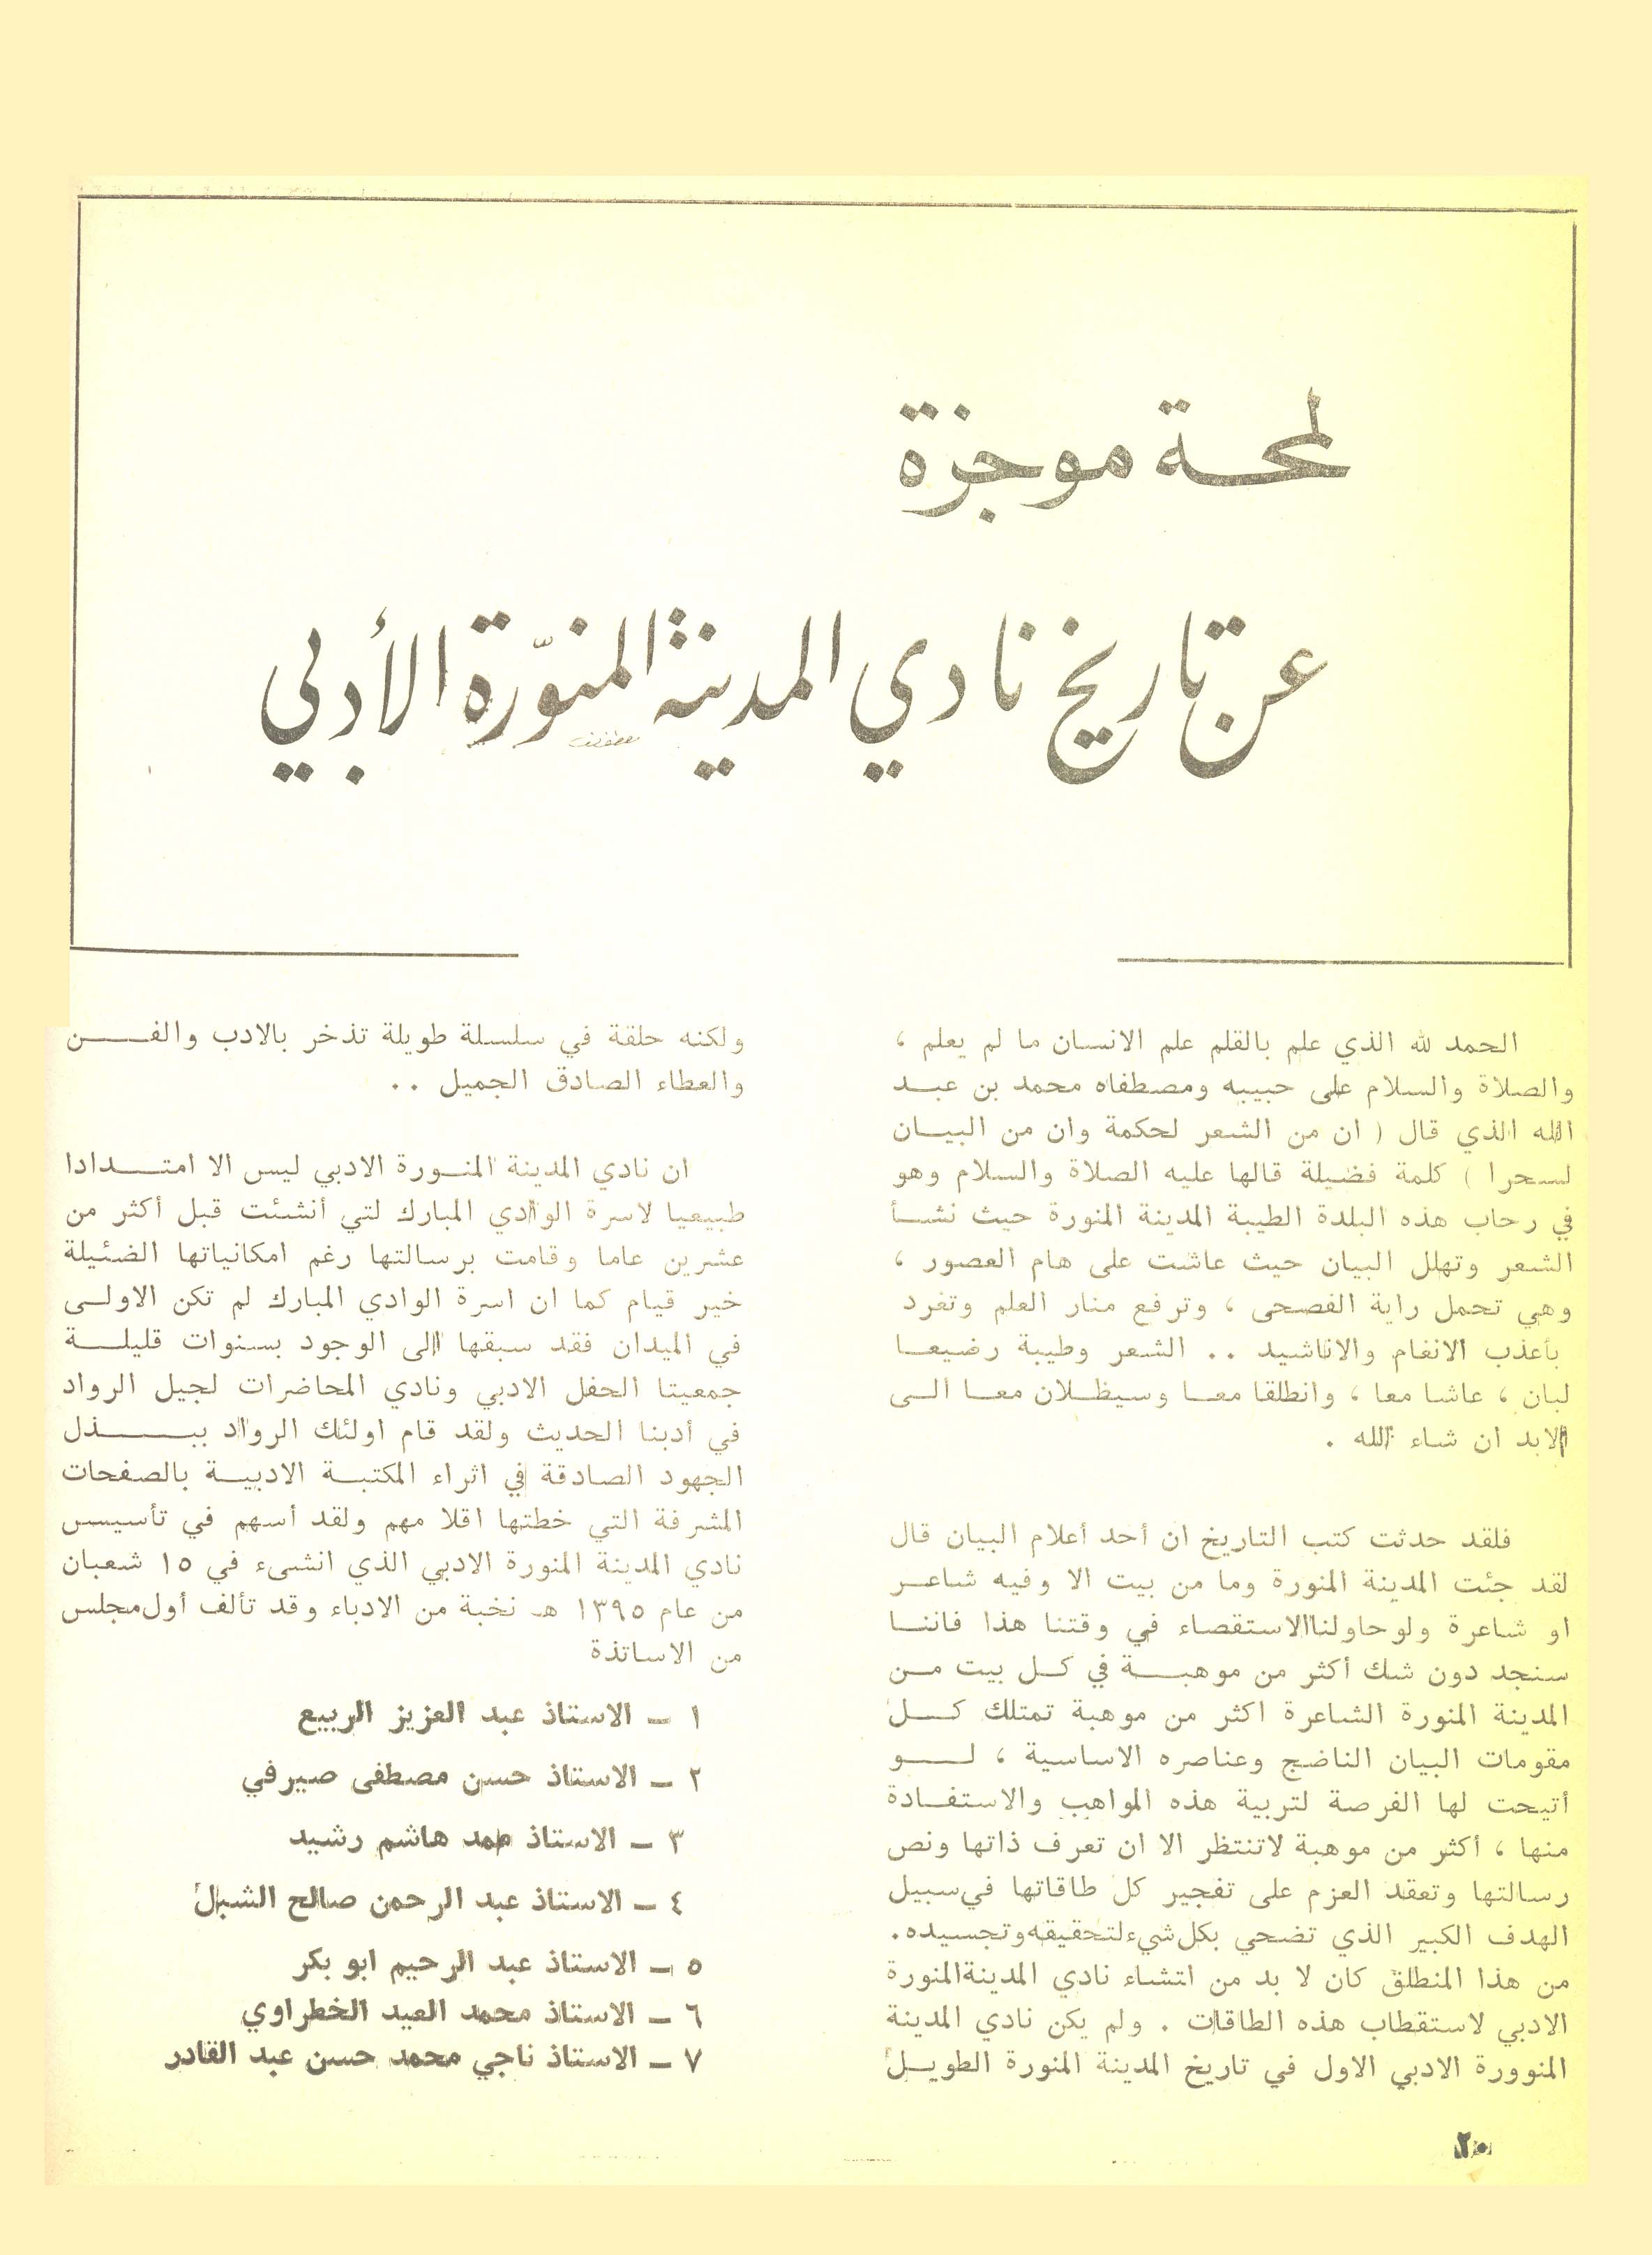 لمحة موجزة
عن تاريخ نادي المدينة المنوّرة الأدبي
الحمد لله الذي علم بالقلم علم الانسان ما لم يعلم ،
والصلاة والسلام على حبيبه ومصطفاه محمد بن عبد
الله الذي قال ( ان من الشعر لحكمة وان من البيان
لسحرا ) كلمة فضيلة قالها عليه الصلاة والسلام وهو
في رحاب هذه البلدة الطيبة المدينة المنورة حيث نشأ
الشعر وتهلل البيان حيث عاشت على هام العصور ،
وهي تحمل راية الفصحى ، وترفع منار العلم وتغرد
بأعذب الانغام والاناشيد .. الشعر وطيبة رضيعا
لبان ، عاشا معا ، وانطلقا معا وسيظلان معا الى
الابد ان شاء الله .
فلقد حدثت كتب التاريخ ان أحد أعلام البيان قال
لقد جئت المدينة المنورة وما من بيت الا وفيه شاعر
او شاعرة ولو حاولنا الاستقصاء في وقتنا هذا فاننا
سنجد دون شك أكثر من موهبة في كل بيت من
المدينة المنورة الشاعرة اكثر من موهبة تمتلك كل
مقومات البيان الناضج وعناصره الاساسية ، لو
أتيحت لها الفرصة لتربية هذه المواهب والاستفادة
منها ، أكثر من موهبة لاتنتظر الا ان تعرف ذاتها ونص
رسالتها وتعقد العزم على تفجير كل طاقاتها في سبيل
الهدف الكبير الذي تضحي بكل شيء لتحقيقه وتجسيده .
من هذا المنطلق كان لا بد من انتشاء نادي المدينة المنورة
الادبي لاستقطاب هذه الطاقات . ولم يكن نادي المدينة
المنوورة الادبي الاول في تاريخ المدينة المنورة الطويل
ولكنه حلقة في سلسلة طويلة تذخر بالادب والفن
والعطاء الصادق الجميل ..
ان نادي المدينة المنورة الادبي ليس الا امتدادا
طبيعيا لاسرة الوادي المبارك لتي أنشئت قبل أكثر من
عشرين عاما وقامت برسالتها رغم امكانياتها الضئيلة
خير قيام كما ان اسرة الوادي المبارك لم تكن الاولى
في الميدان فقد سبقها الى الوجود بسنوات قليلة
جمعيتا الحفل الادبي ونادي المحاضرات لجيل الرواد
في أدبنا الحديث ولقد قام اولئك الرواد ببذل
الجهود الصادقة في اثراء المكتبة الادبية بالصفحات
المشرفة التي خطتها اقلا مهم ولقد أسهم في تأسيس
نادي المدينة المنورة الادبي الذي انشىء في ١٥ شعبان
من عام ١٣٩٥ هـ نخبة من الادباء وقد تألف أول مجلس
من الاساتذة
١ – الاستاذ عبد العزيز الربيع
٢ – الاستاذ حسن مصطفى صيرفي
٣ – الاستاذ محمد هاشم رشيد
٤ – الاستاذ عبد الرحمن صالح الشبل
٥ – الاستاذ عبد الرحيم ابو بكر
٦ – الاستاذ محمد العيد الخطراوي
٧ – الاستاذ ناجي محمد حسن عبد القادر
٢٠